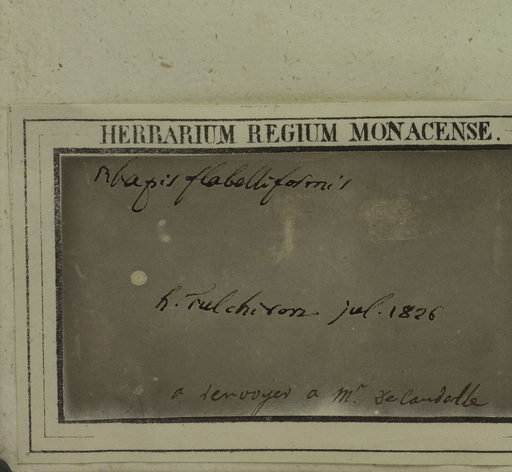 HERBARIUM REGIUM MONACENSE.
Rhapis flabelliformis
h. Fulchiron. jul. 1826
a renvoyer a Mr. DeCandolle